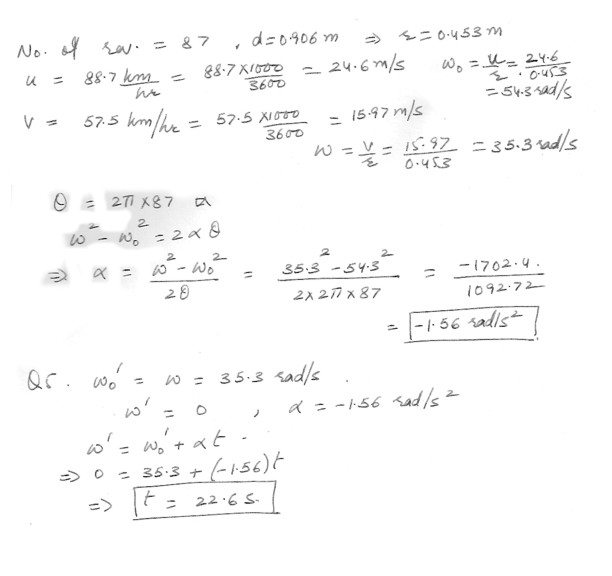 No. of rev. = 87 , d = 0.906 m ⇒ r = 0.453 m
u = 88.7 km/hr = 88.7 X1000/3600 = 24.6 m/s ω₀ = u/r = 24.6/0.453
= 54.3 rad/s
V = 57.5 km/hr = 57.5 X1000/3600 = 15.97 m/s
ω = V/r = 15.97/0.453 = 35.3 rad/s
θ = 2π x87
ω² - ω₀² = 2αθ
⇒ α = ω² - ω₀²/2θ = 35.3² - 54.3²/2x2πx87 = -1702.4./1092.72
= -1.56 rad/s²
Q5. ω₀' = ω = 35.3 rad/s .
ω' = 0 , α = -1.56 rad/s²
ω' = ω₀' + αt .
⇒ 0 = 35.3 + (-1.56)t
⇒ t = 22.6 s.